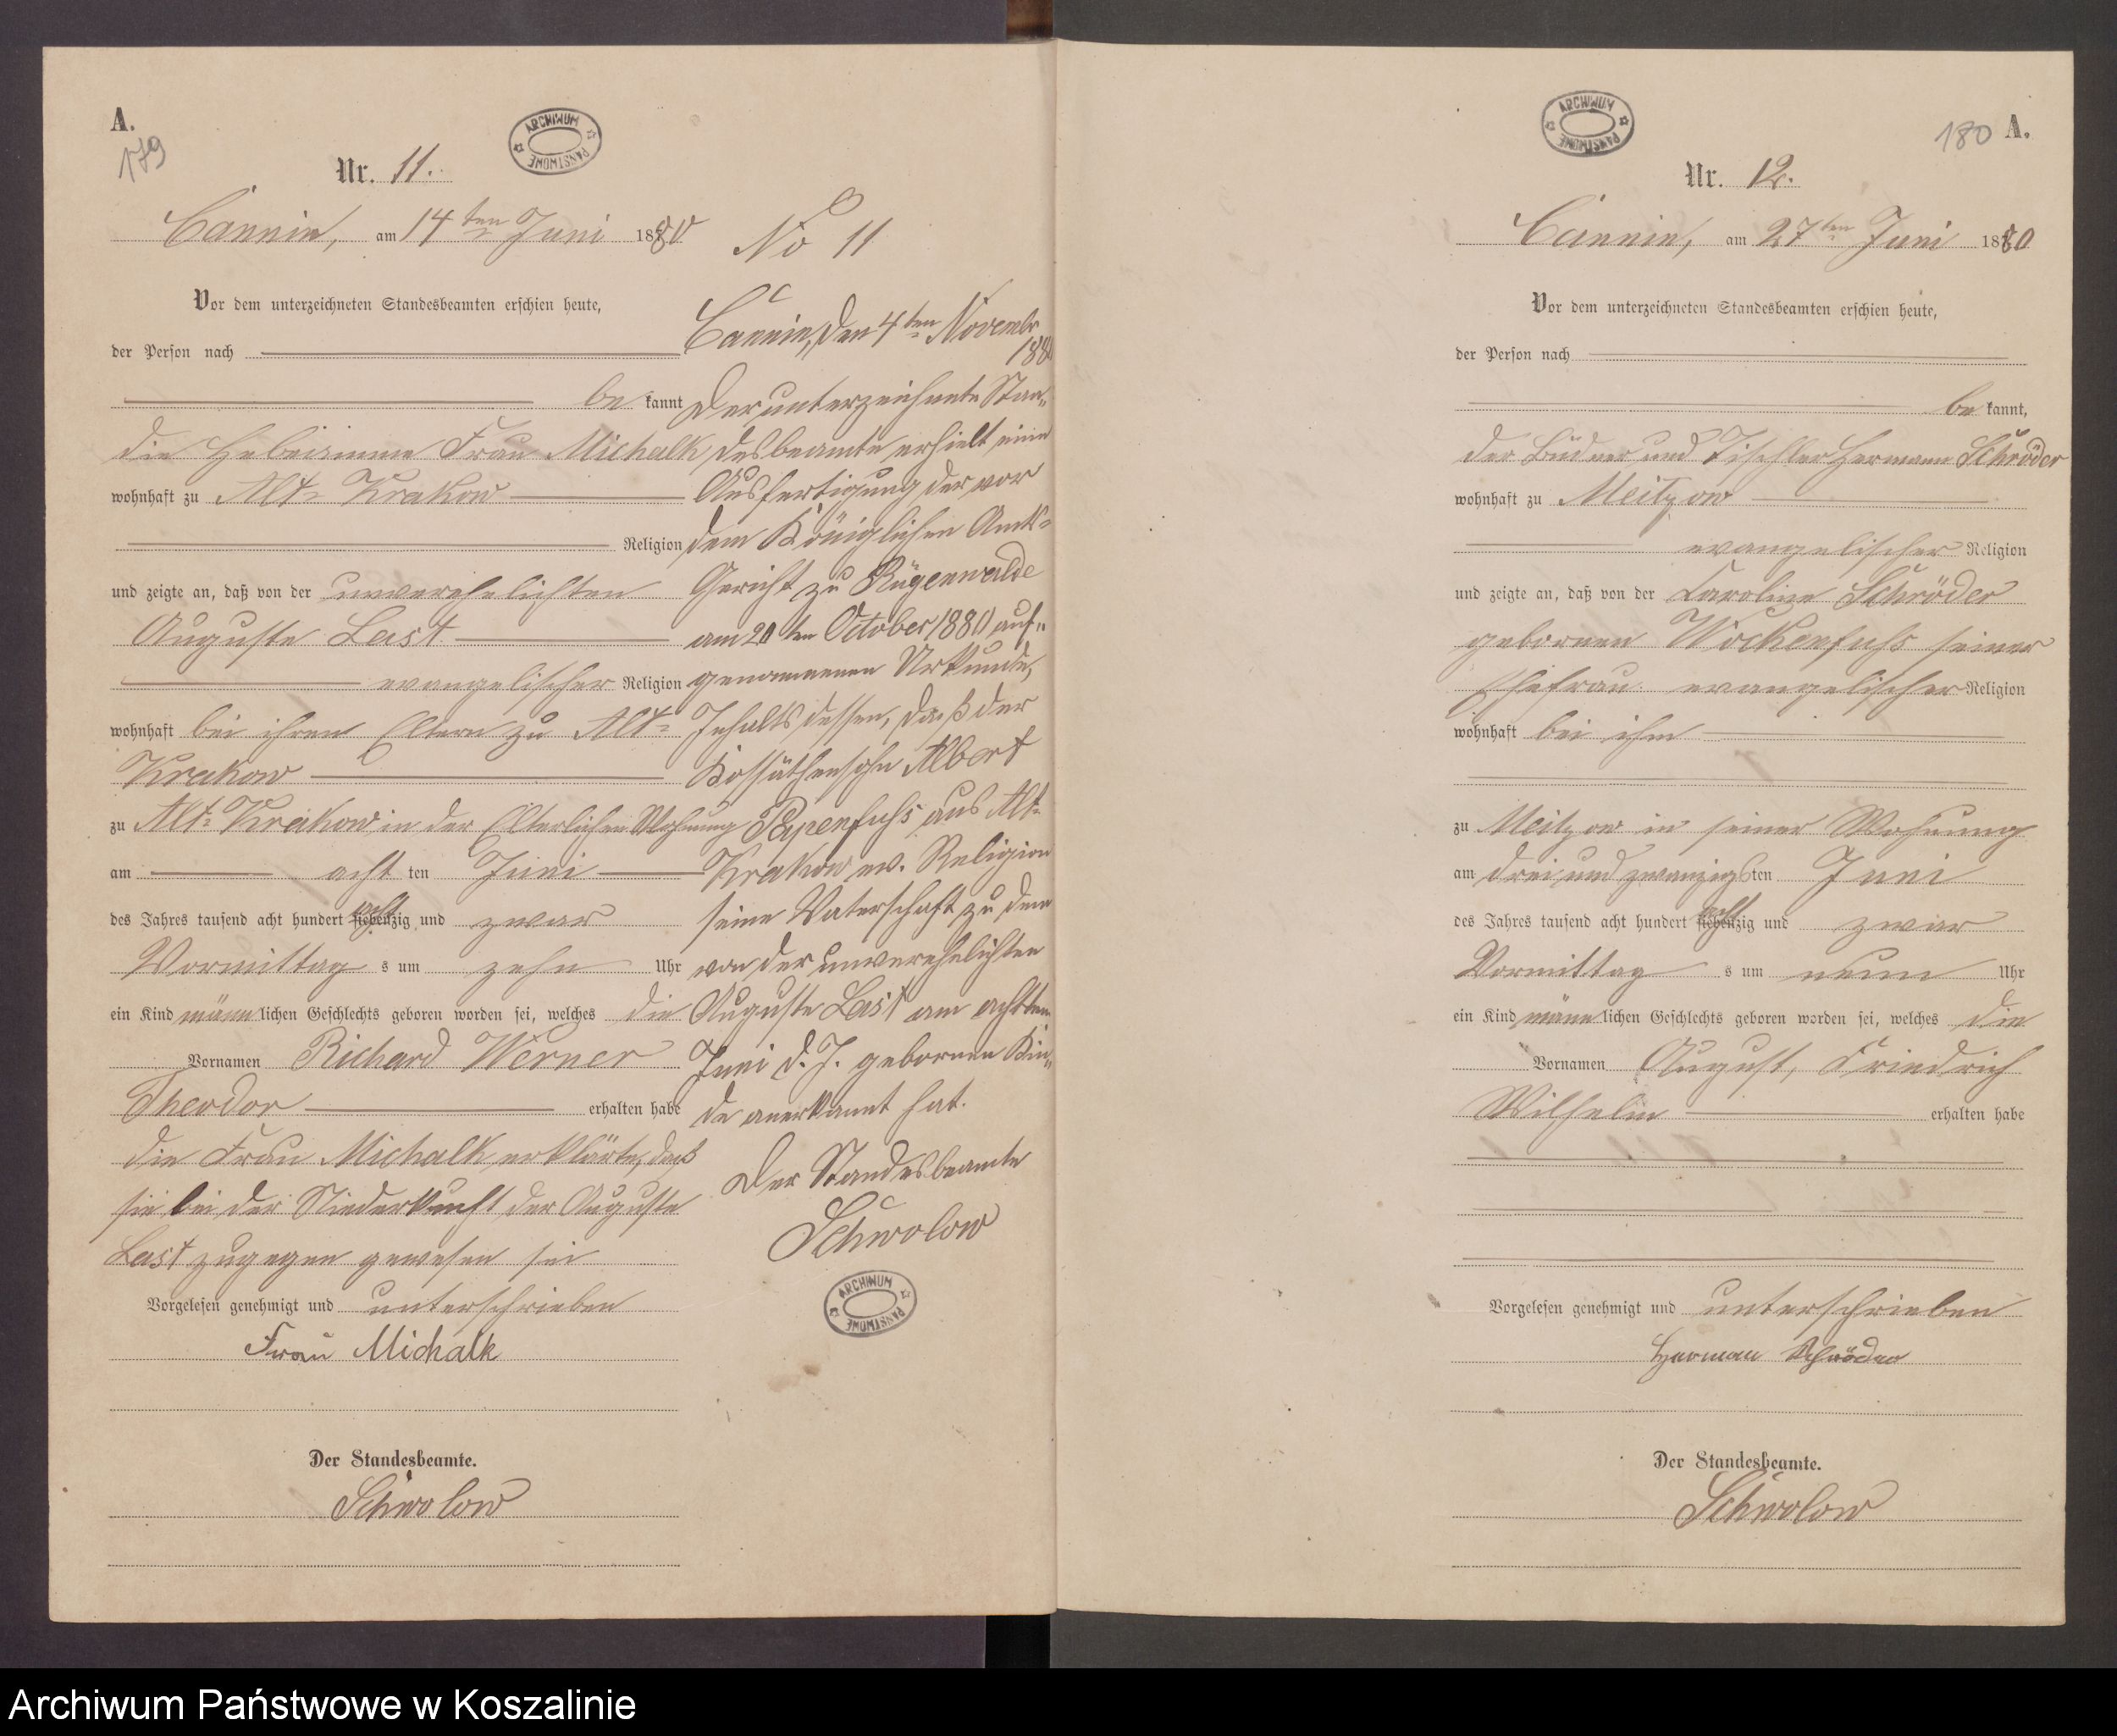 A.
179
Nr. 11.
ARCHIWUM PAŃSTWOWE
Cannin, am 14ten Juni 1880
Vor dem unterzeichneten Standesbeamten erschien heute,
der Person nach
bekannt
die Hebeamme Frau Michalk
wohnhaft zu Alt-Krakow
Religion
und zeigte an, daß von der unverehelichten
Auguste Last
evangelischer Religion
wohnhaft bei ihren Eltern zu Alt-
Krakow
zu Alt-Krakow in der Elterlichen Wohnung
am achtten Juni
des Jahres tausend acht hundert siebenzig acht und zwar
Vormittags um zehn Uhr
ein Kind männlichen Geschlechts geboren worden sei, welches die
Vornamen Richard Werner
Theodor erhalten habe
die Frau Michalk erklärte, daß
sie bei der Niederkunft der Auguste
Last zugegen gewesen sei
Vorgelesen genehmigt und unterschrieben
Frau Michalk
Der Standesbeamte.
Schwolow
No 11
Cannin, den 4ten Novembr
188
Der unterzeichnete Stan-
desbeamte erhielt eine
Ausfertigung der vor
dem Königlichen Amts-
Gericht zu Rügenwalde
am 20ten October 1880 auf-
genommenen Urkunde,
Inhalts dessen, daß der
Kossäthensohn Albert
Papenfuhs aus Alt-
Krakow ev. Religion
seine Vaterschaft zu dem
von der unverehelichten
Auguste Last am achtten
Juni d. J. gebornen Kin-
de anerkannt hat.
Der Standesbeamte
Schwolow
ARCHIWUM PAŃSTWOWE
ARCHIWUM PAŃSTWOWE
180 A.
Nr. 12.
Cannin, am 27ten Juni 1880
Vor dem unterzeichneten Standesbeamten erschien heute,
der Person nach
bekannt,
der Büdner und Tischler Hermann Schröder
wohnhaft zu Meitzow
evangelischer Religion
und zeigte an, daß von der Caroline Schröder
gebornen Wockenfuhs seiner
Ehefrau evangelischer Religion
wohnhaft bei ihm
zu Meitzow in seiner Wohnung
am drei und zwanzigsten Juni
des Jahres tausend acht hundert siebenzig acht und zwar
Vormittags um neun Uhr
ein Kind männlichen Geschlechts geboren worden sei, welches die
Vornamen August, Friedrich
Wilhelm erhalten habe
Vorgelesen genehmigt und unterschrieben
Herman Schröder
Der Standesbeamte.
Schwolow
Archiwum Państwowe w Koszalinie